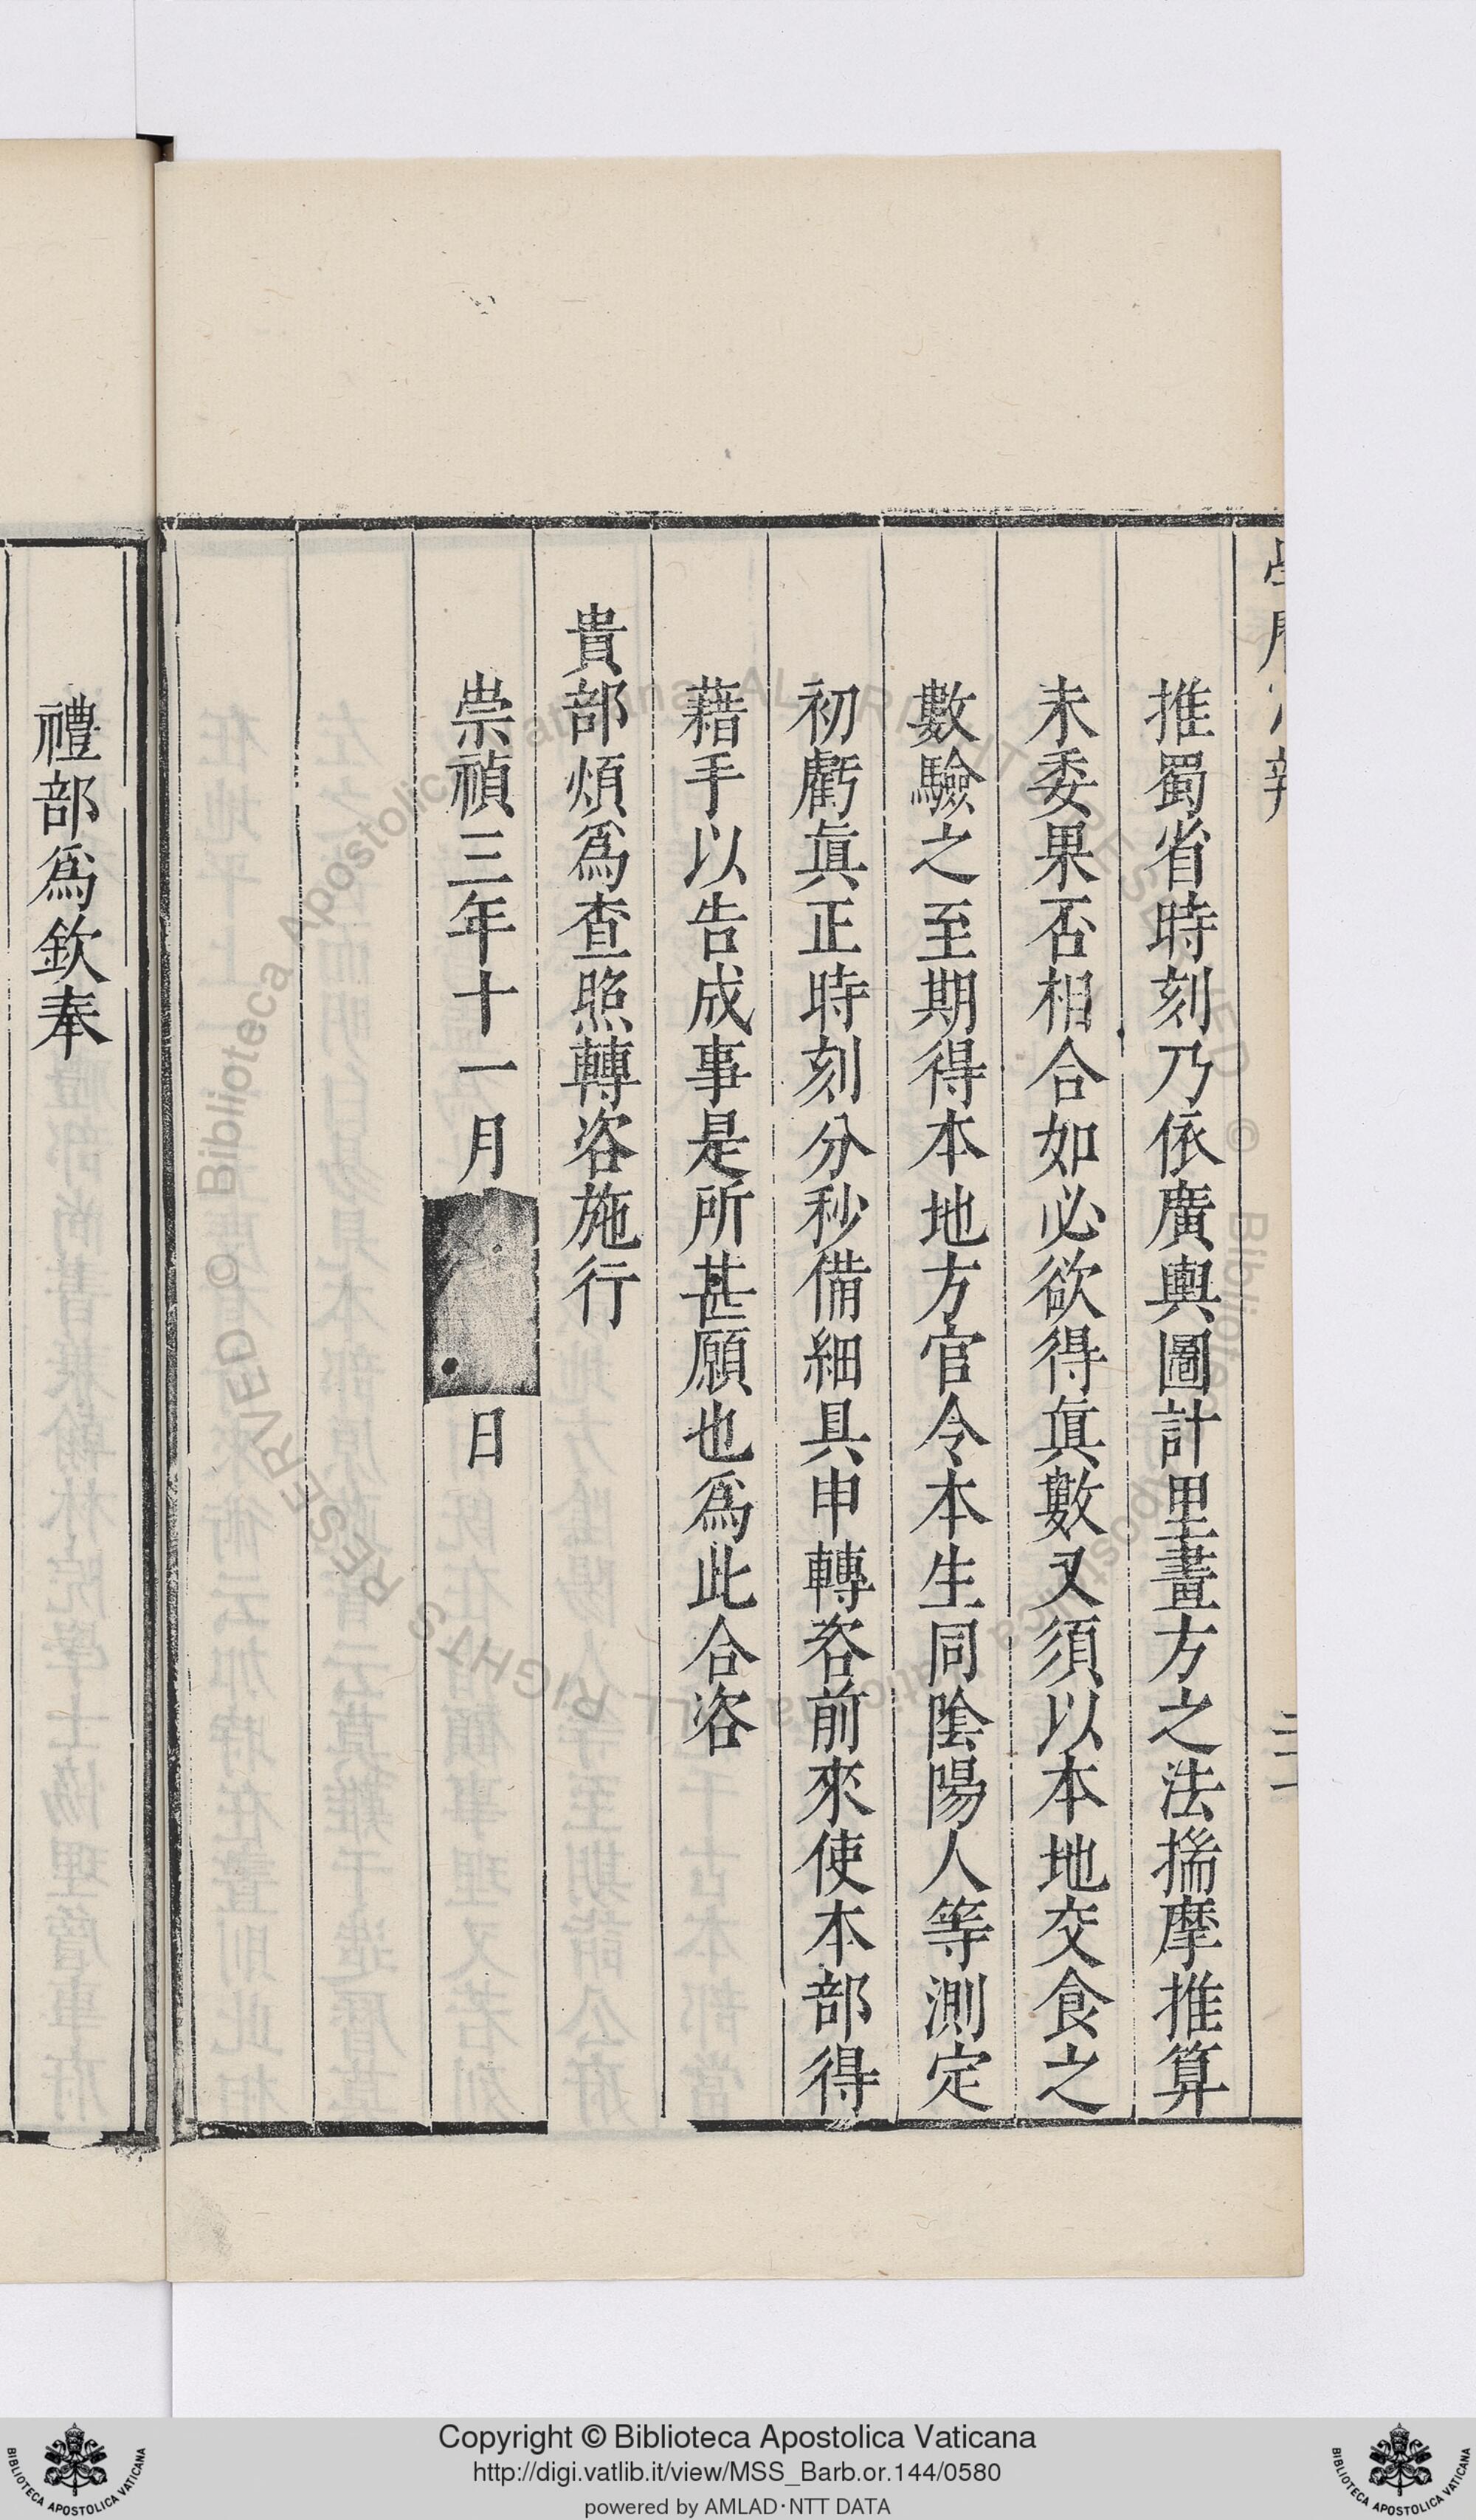 推蜀省時刻乃依廣輿圖計里畫方之法揣摩推算
未委果否相合如必欲得眞數又須以本地交食之
數驗之至期得本地方官令本生同陰陽人等測定
初虧眞正時刻分秒備細具申轉咨前來使本部得
藉手以告成事是所甚願也爲此合咨
貴部煩爲查照轉咨施行
崇禎三年十一月日
禮部爲欽奉
Copyright © Biblioteca Apostolica Vaticana
http://digi.vatlib.it/view/MSS_Barb.or.144/0580
powered by AMLAD·NTT DATA
BIBLIOTECA APOSTOLICA VATICANA
BIBLIOTECA APOSTOLICA VATICANA